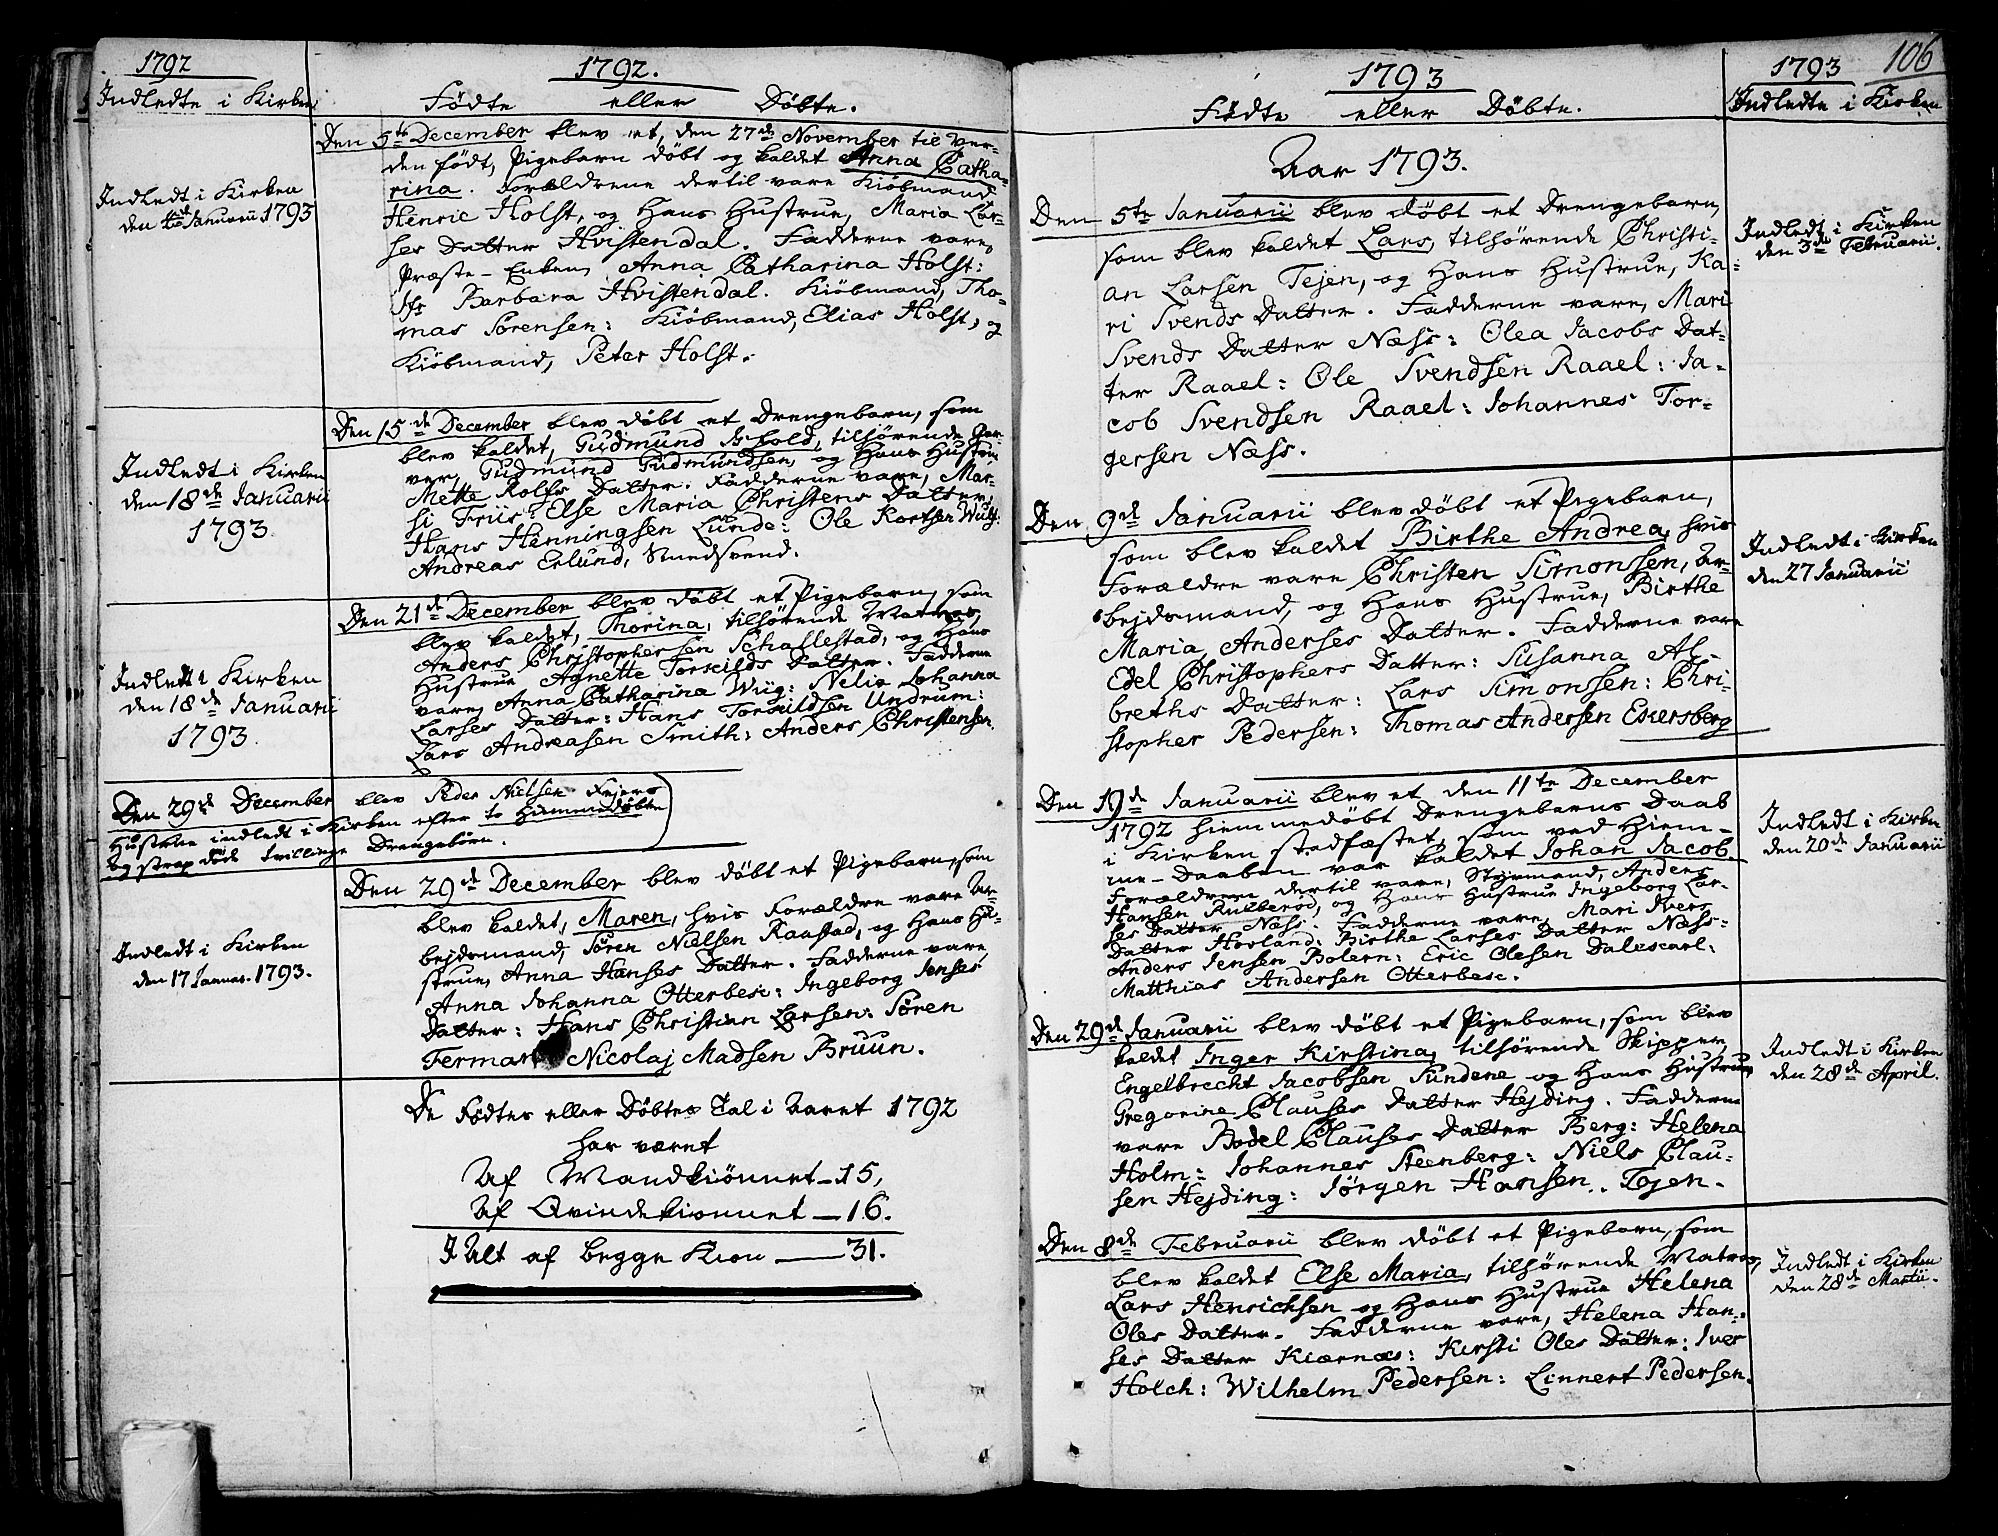 1792
Indledte i Kirken
1792.
Fødte eller Døbte.
Den 5te December blev et, den 27de November til Ver-
den født, Pigebarn døbt og kaldet Anna Catha-
rina. Forældrene dertil vare Kiøbmand,
Henric Holst, og Hans Hustrue, Maria Lar-
ses Datter Hvistendal. Fadderne vare,
Præste-Enken, Anna Catharina Holst:
Jfr Barbara Hvistendal. Kiøbmand, Tho-
mas Sørensen: Kiøbmand, Elias Holst, og
Kiøbmand, Peter Holst.
Indledt i Kirken
den Januarii 1793
Den 15de December blev døbt et Drengebarn, som
blev kaldet, Gudmund, tilhørende Gar-
ver, Gudmund Gudmundsen, og Hans Hustrue
Mette Rolfs Datter. Fadderne vare, Mar-
si Friis: Else Maria Christens Datter,
Hans Henningsen Lunde: Ole Kortsen Wüg:
Andreas Erlund, Smedsvend.
Indledt i Kirken
den 18de Januarii
1793.
Den 21de December blev døbt et Pigebarn, som
blev kaldet, Thorina, tilhørende Matros,
Anders Christophersen Schallestad, og Hans
Hustrue Agnette Torkilds Datter. Fadderne
vare, Anna Catharina Wüg: Nelia Johanna
Larses Datter: Hans Torkildsen Undrum:
Lars Andreasen Smith: Anders Christensen
Indledt i Kirken
den 18de Januarii
1793.
Den 29de December blev Peder Nielsen Fejers
Hustrue indledt i Kirken efter to Hiemmedøbte
og strax døde Tvillinge Drengebørn.
Den 29de December blev døbt et Pigebarn, som
blev kaldet, Maren, hvis Forældre vare Ar-
bejdsmand, Søren Nielsen Raastad, og Hans Hu-
strue, Anna Hanses Datter. Fadderne vare,
Anna Johanna Otterbech: Ingeborg Jenses
Datter: Hans Christian Larsen: Søren
Ferman Nicolaj Madsen Bruun.
Indledt i Kirken
den 17 Januar. 1793.
De Fødtes eller Døbtes Tal i Aaret 1792
har været
Af Mandkiønnet - 15,
Af Qvindekiønnet - 16.
I Alt af begge Kiøn - 31.
1793
Fødte eller Døbte.
1793
106
Indledte i Kirken
Aar 1793.
Den 5te Januarii blev døbt et Drengebarn,
som blev kaldet Lars, tilhørende Christi-
an Larsen Tejen, og Hans Hustrue, Ka-
ri Svends Datter. Fadderne vare, Mari
Svends Datter Næss: Olea Jacobs Dat-
ter Raael: Ole Svendsen Raael: Ja-
cob Svendsen Raael: Johannes Tor-
gersen Næss.
Indledt i Kirken
den 3de Februarii.
Den 9de Januarii blev døbt et Pigebarn,
som blev kaldet Birthe Andrea, hvis
Forældre vare Christen Simonssen, Ar-
bejdsmand, og Hans Hustrue, Birthe
Maria, Anderses Datter. Fadderne vare
Edel Christophers Datter: Susanna Al-
breths Datter: Lars Simonssen: Chri-
stopher Pedersen: Thomas Andersen Eskersberg
Indledt i Kirken
den 27 Januarii
Den 19de Januarii blev et den 11te December
1792 hiemmedøbt Drengebarns Daab
i Kirken stadfæstet, som ved Hiem-
me-Daaben var kaldet Johan Jacob.
Forældrene dertil vare, Styrmand, Anders
Hansen, og Hans Hustrue Ingeborg Lar-
ses Datter Næss. Fadderne vare, Mari Ivers
Datter Hovland: Birthe Larses Datter Næss:
Anders Jensen Bolern: Eric Olesen Dalescarl:
Matthias Andersen Otterbech.
Indledt i Kirken
den 20de Januarii
Den 29de Januarii blev døbt et Pigebarn, som blev
kaldet Inger Kirstina, tilhørende Skipper
Engelbrecht Jacobsen Sundene og Hans Hustrue
Gregorine Clauses Datter Hejding. Fadderne
vare Bodel Clauses Datter Berg: Helena
Holm: Johannes Steenberg: Niels Clau-
sen Hejding: Jørgen Hansen Tejen.
Indledt i Kirken
den 28de April.
Den 8de Februarii blev døbt et Pigebarn, som
blev kaldet Else Maria, tilhørende Matros,
Lars Henrichsen og Hans Hustrue Helena
Oles Datter. Fadderne vare, Helena Han-
ses Datter Kiærnæs: Kirsti Oles Datter: Iver
Holch: Wilhelm Pedersen: Linnert Pedersen.
Indledt i Kirken
den 28de Martii.